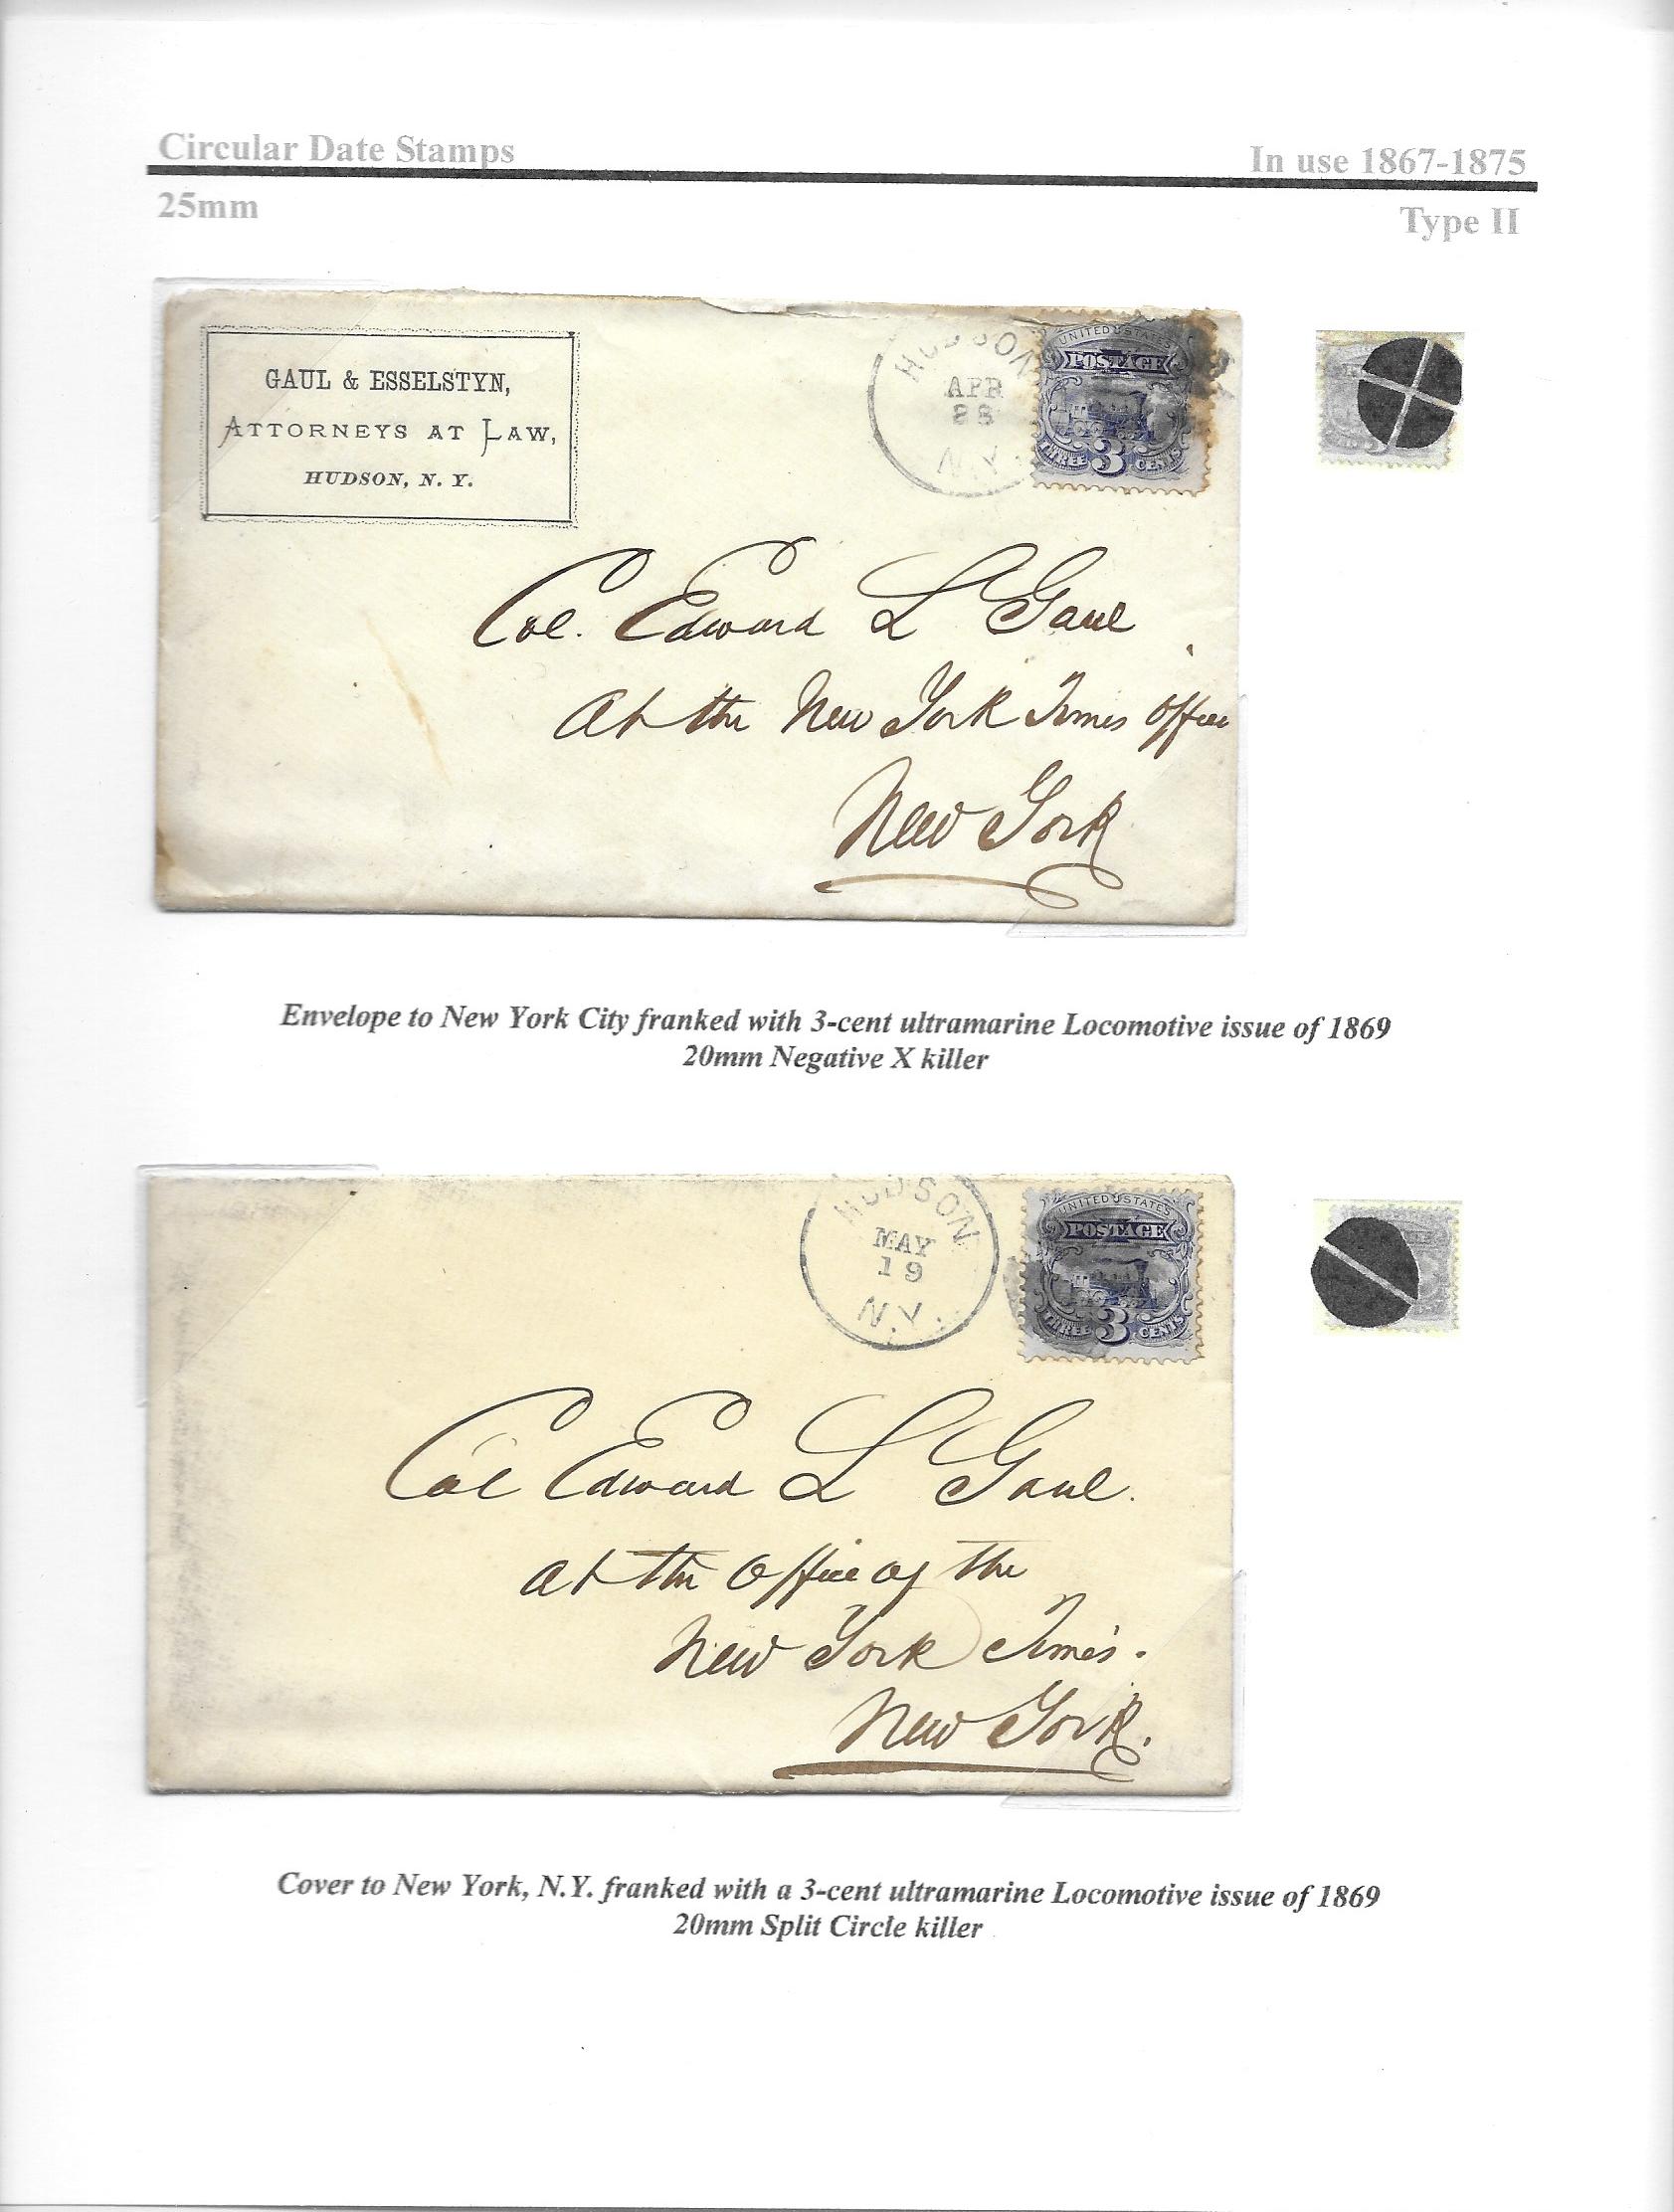 Circular Date Stamps
In use 1867-1875
25mm
Type II
GAUL & ESSELSTYN,
ATTORNEYS AT LAW,
HUDSON, N. Y.
HUDSON
APR
28
N.Y.
UNITED STATES
POSTAGE
THREE 3 CENTS
Col. Edward L Gaul
At the New York Times Office
New York
Envelope to New York City franked with 3-cent ultramarine Locomotive issue of 1869
20mm Negative X killer
HUDSON
MAY
19
N.Y.
UNITED STATES
POSTAGE
THREE 3 CENTS
Col Edward L Gaul.
At the Office of the
New York Times.
New York.
Cover to New York, N.Y. franked with a 3-cent ultramarine Locomotive issue of 1869
20mm Split Circle killer